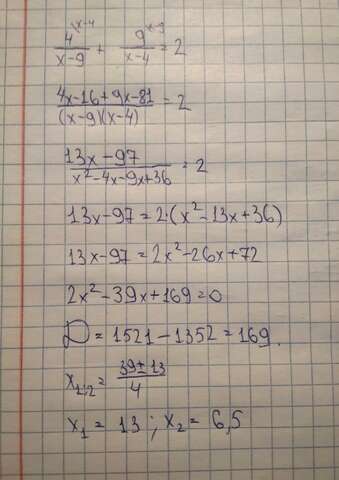 4^(x-4)/(x-9) + 9^(x-9)/(x-4) = 2
(4x-16+9x-81)/((x-9)(x-4)) = 2
(13x-97)/(x²-4x-9x+36) = 2
13x-97=2·(x²-13x+36)
13x-97=2x²-26x+72
2x²-39x+169=0
D=1521-1352=169.
x₁;₂=(39±13)/4
x₁=13; x₂=6,5